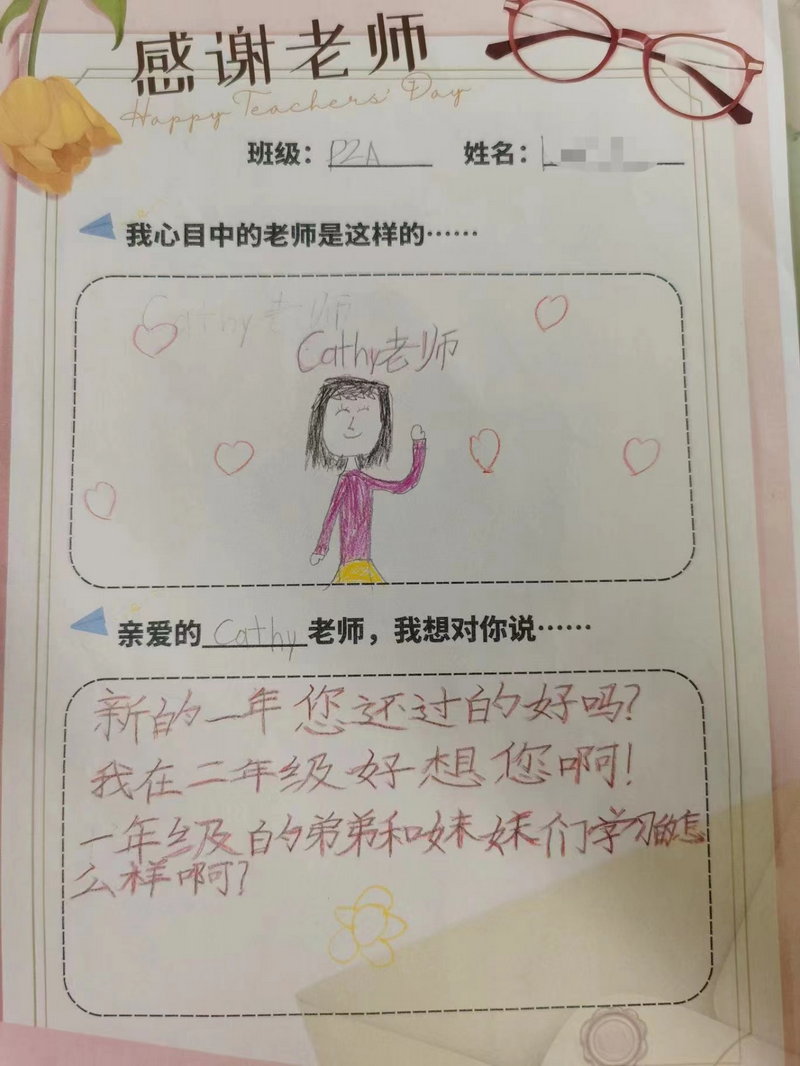 感谢老师
Happy Teachers' Day
班级：P2A 姓名：
我心目中的老师是这样的……
Cathy老师
Cathy老师
亲爱的Cathy老师，我想对你说……
新的一年您还过的好吗？
我在二年级好想您啊！
一年级的弟弟和妹妹们学习的怎
么样啊？